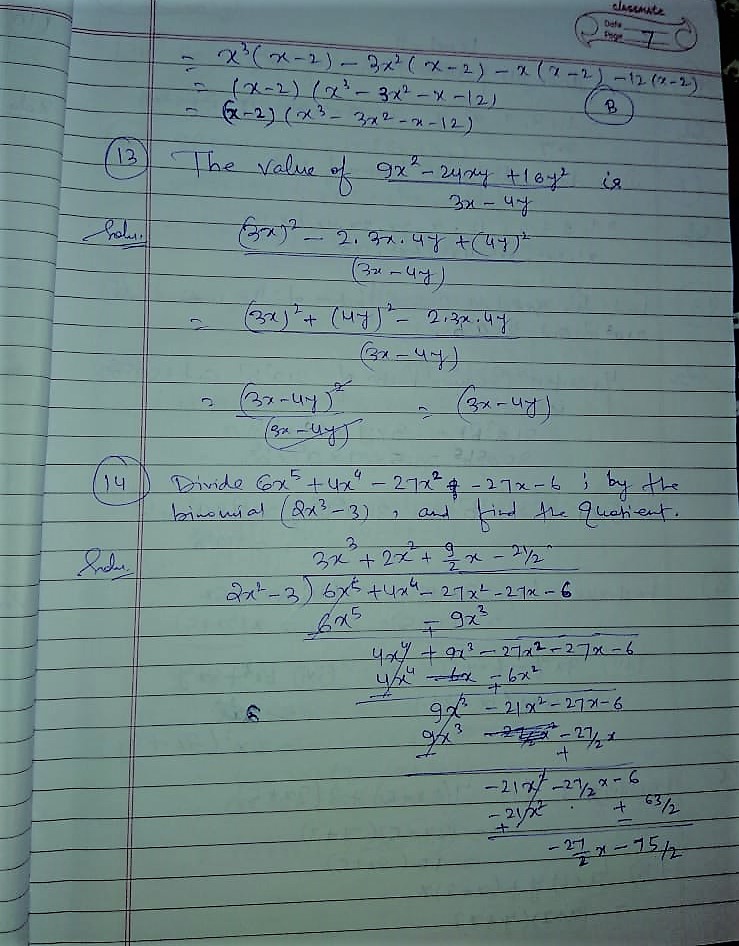 classmate
Date
Page 7
= x³(x-2) - 3x²(x-2) - x(x-2) -12(x-2)
= (x-2) (x³ - 3x² - x - 12)
= (x-2) (x³ - 3x² - x - 12)
B
13 The value of (9x² - 24xy + 16y²)/(3x - 4y) is
Solu. ((3x)² - 2. 3x. 4y + (4y)²)/(3x - 4y)
= ((3x)² + (4y)² - 2.3x.4y)/(3x - 4y)
= (3x-4y)²/(3x-4y) = (3x-4y)
14 Divide 6x⁵ + 4x⁴ - 27x² - 27x - 6 ; by the
binomial (2x³ - 3), and find the Quotient.
Solu. 3x³ + 2x² + 9/2 x - 21/2
2x² - 3) 6x⁵ + 4x⁴ - 27x² - 27x - 6
6x⁵ - 9x³
+
4x⁴ + 9x³ - 27x² - 27x - 6
4x⁴ - 6x - 6x²
- +
9x³ - 21x² - 27x - 6
9x³ - 27/2 x
- +
-21x² - 27/2 x - 6
-21x² + 63/2
+ -
- 27/2 x - 75/2